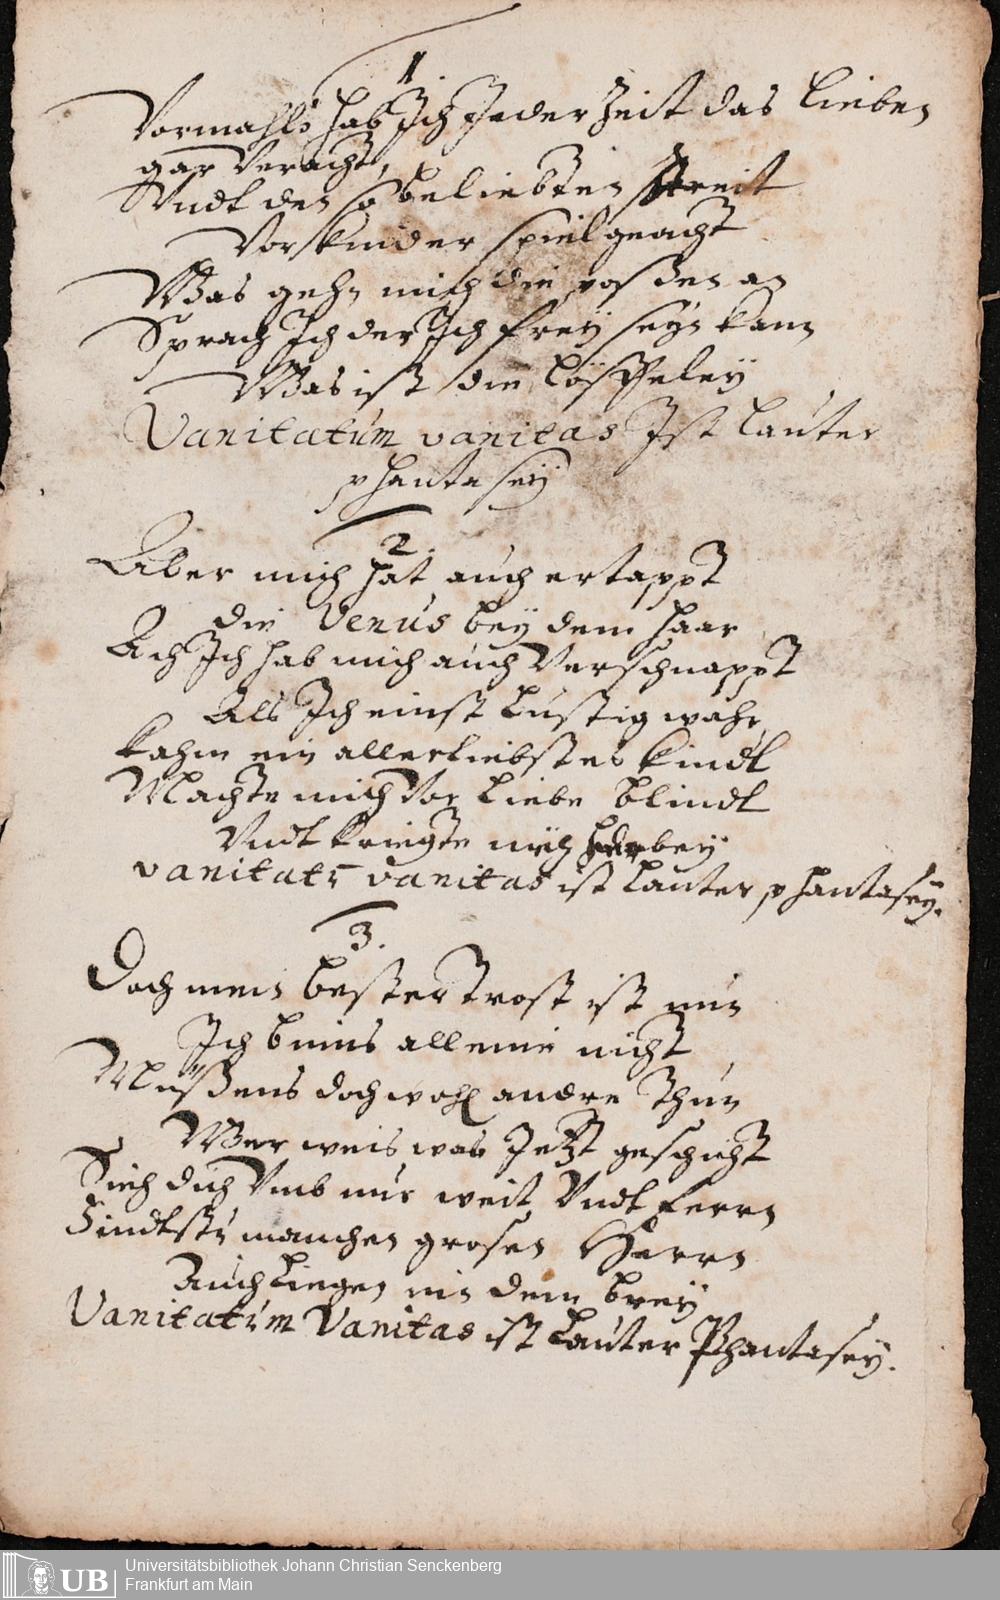 1
Vormahls hab Ich Jeder Zeit das Lieben
gar veracht,
Vndt den so beliebten streit
Vor kinder spiel geacht
Was gehn mich die possen an
Sprach Ich der Ich frey seyn kann
Was ist die Löffeley
Vanitatum vanitas Ist lauter
phantasey
2.
Aber mich hat auch ertappt
die Venus bey dem Haar
Ach Ich hab mich auch verschnappt
Als Ich einst Lustig wahr
kahm ein allerliebstes kindt
Machte mich vor Liebe blindt
Vndt kriegte mich herbey
vanitatu vanitas ist lauter phantasey.
3.
Doch mein bester trost ist nun
Ich bins alleine nicht
Müßens doch wohl andre thun
Wer weis was Jetzt geschicht
Sieh dich Vmb nur weit Vndt ferrn
Findtstu manchen grosen Herrn
Auch liegen in dem brey
Vanitatum Vanitas ist Lauter Phantasey.
UB
Universitätsbibliothek Johann Christian Senckenberg
Frankfurt am Main